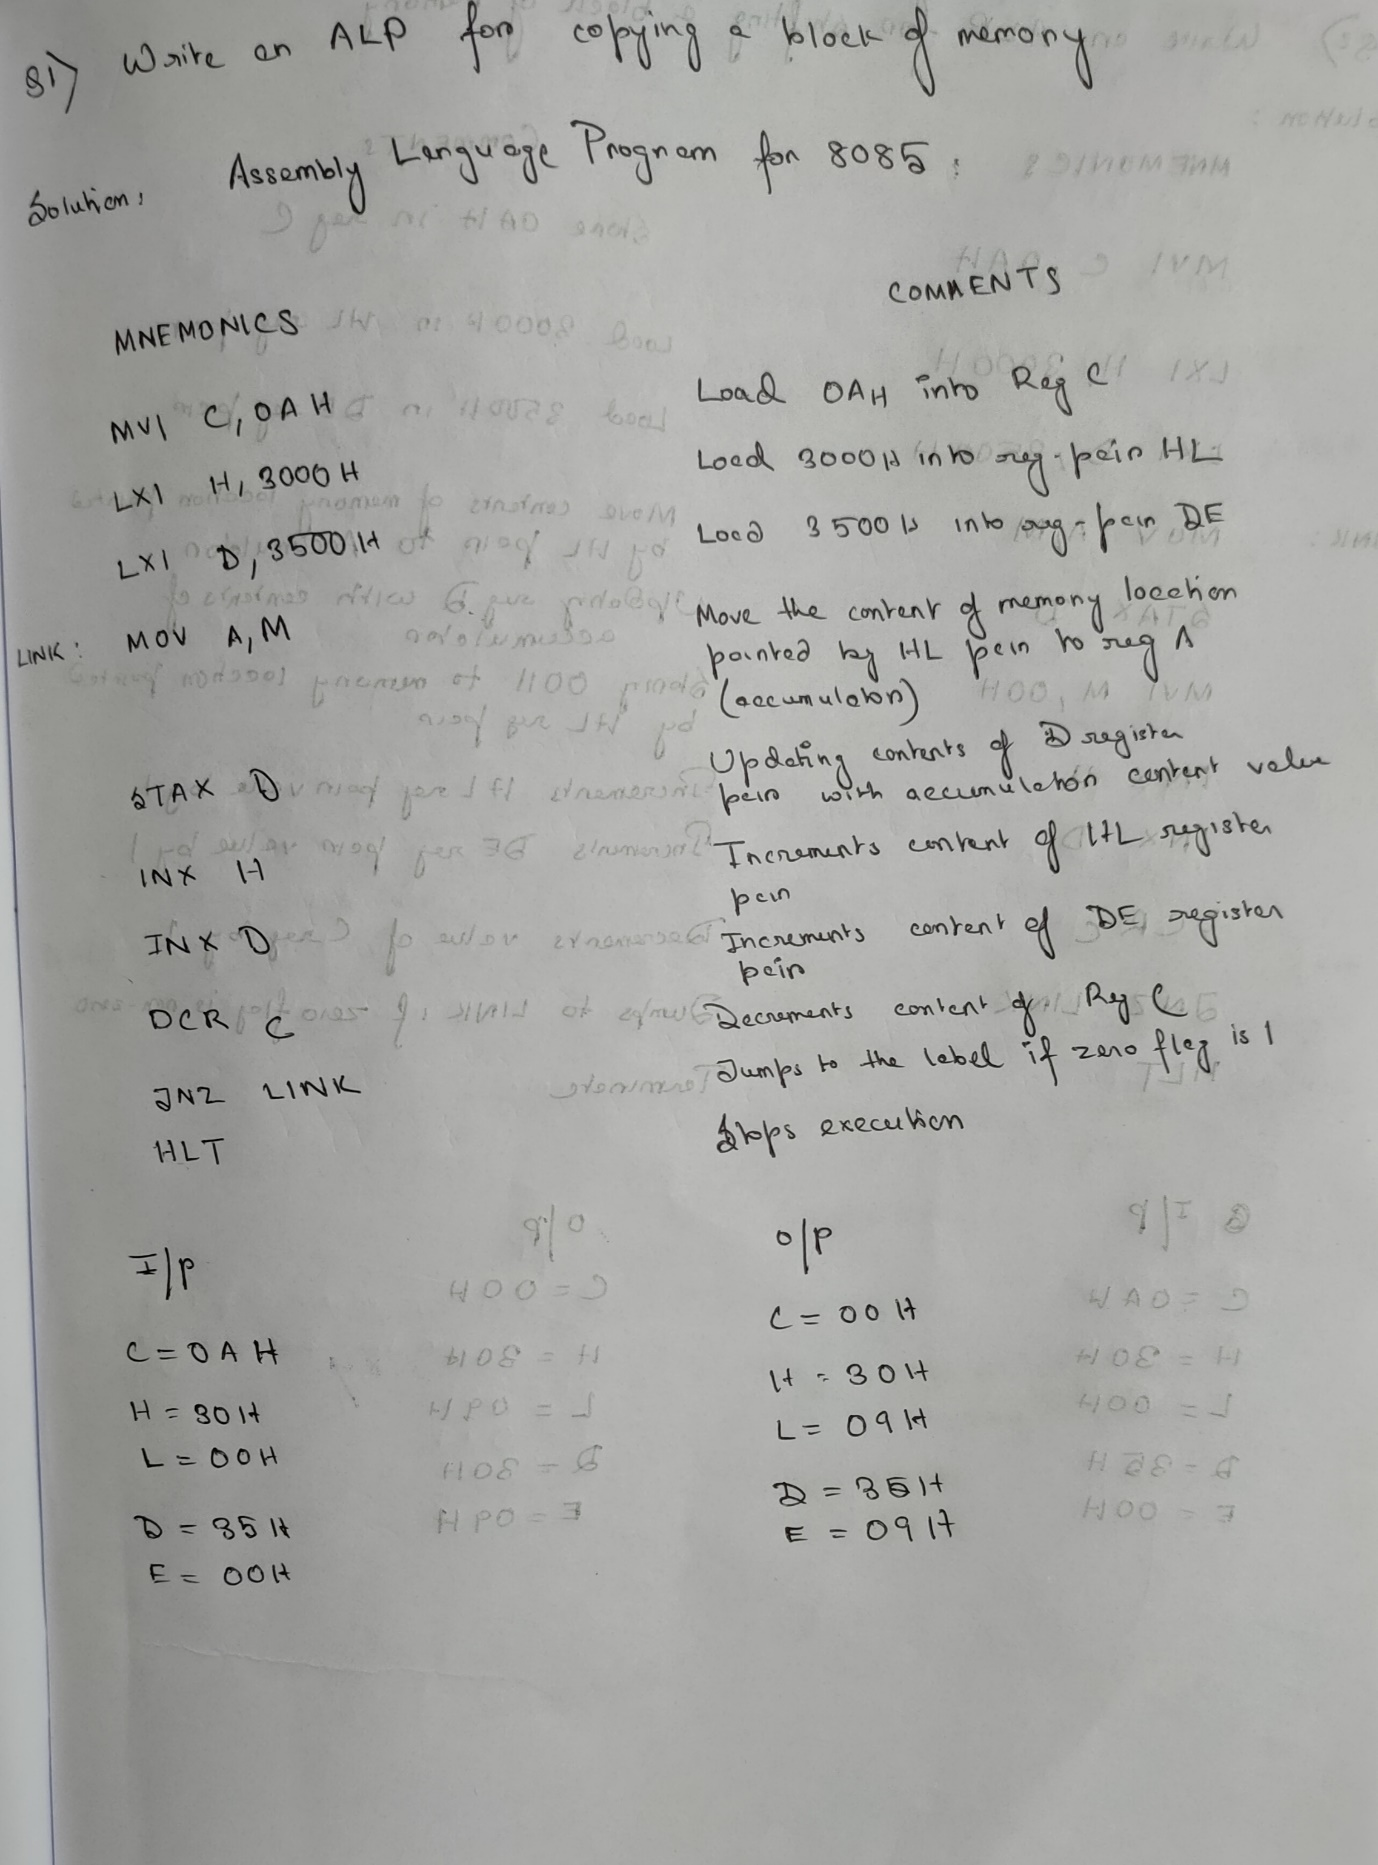 81) Write an ALP for copying a block of memory
Solution: Assembly Language Program for 8085:
MNEMONICS COMMENTS
MVI C, 0AH Load 0AH into Reg C
LXI H, 3000H Load 3000H into reg-pair HL
LXI D, 3500H Load 3500H into reg-pair DE
LINK: MOV A, M Move the content of memory location
pointed by HL pair to reg A
(accumulator)
STAX D Updating contents of D register
pair with accumulator content value
INX H Increments content of HL register
pair
INX D Increments content of DE register
pair
DCR C Decrements content of Reg C
JNZ LINK Jumps to the label if zero flag is 1
HLT Stops execution
I/P O/P
C = 0AH C = 00H
H = 30H H = 30H
L = 00H L = 09H
D = 35H D = 35H
E = 00H E = 09H